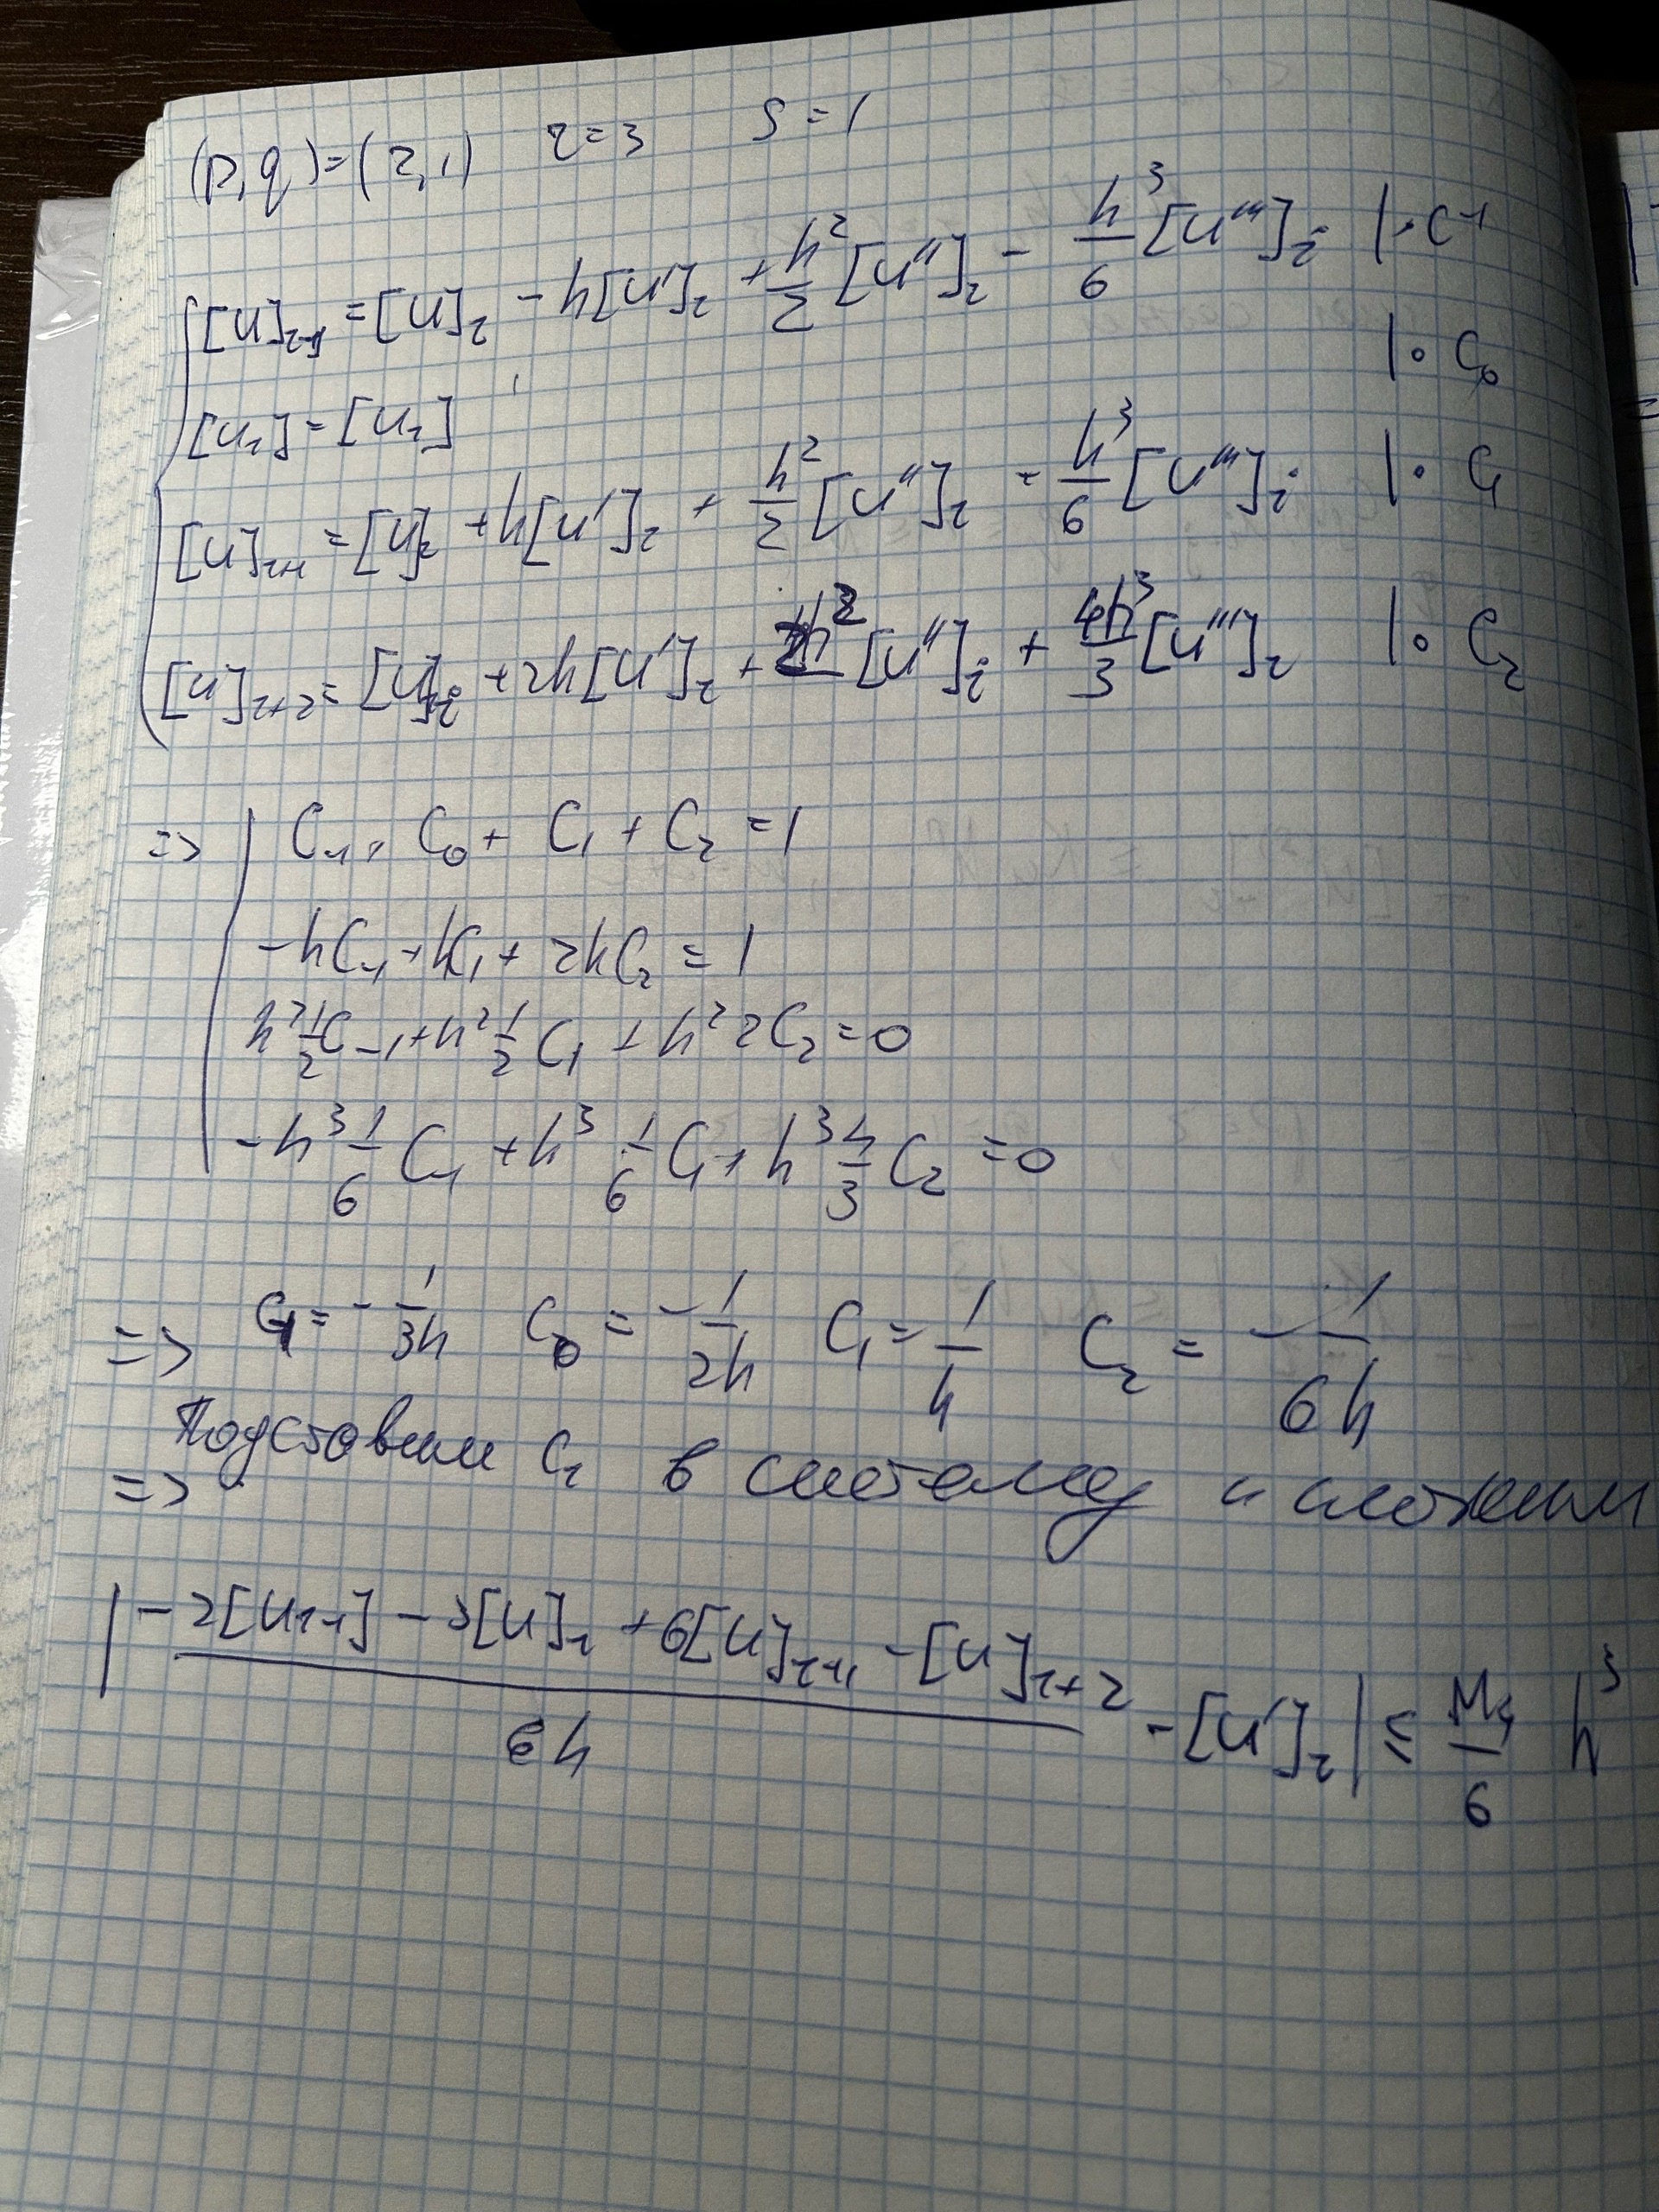 (p,q)=(2,1) r=3 S=1
[u]_{i-1} = [u]_i - h[u']_i + \frac{h^2}{2}[u'']_i - \frac{h^3}{6}[u''']_i |·C_{-1}
[u_i]=[u_i] |· C_0
[u]_{i+1} = [u]_i + h[u']_i + \frac{h^2}{2}[u'']_i - \frac{h^3}{6}[u''']_i |· C_1
[u]_{i+2} = [u]_i + 2h[u']_i + 2h^2[u'']_i + \frac{4h^3}{3}[u''']_i |· C_2
=> C_{-1} + C_0 + C_1 + C_2 = 1
-hC_{-1} + hC_1 + 2hC_2 = 1
h^2\frac{1}{2}C_{-1} + h^2\frac{1}{2}C_1 + h^2 2C_2 = 0
-h^3\frac{1}{6}C_{-1} + h^3\frac{1}{6}C_1 + h^3\frac{4}{3}C_2 = 0
=> C_{-1} = -\frac{1}{3h} C_0 = -\frac{1}{2h} C_1 = \frac{1}{h} C_2 = -\frac{1}{6h}
=> Подставим C_i в систему и сложим
|\frac{-2[u_{i-1}] - 3[u]_i + 6[u]_{i+1} - [u]_{i+2}}{6h} - [u']_i| ≤ \frac{M_4}{6} h^3